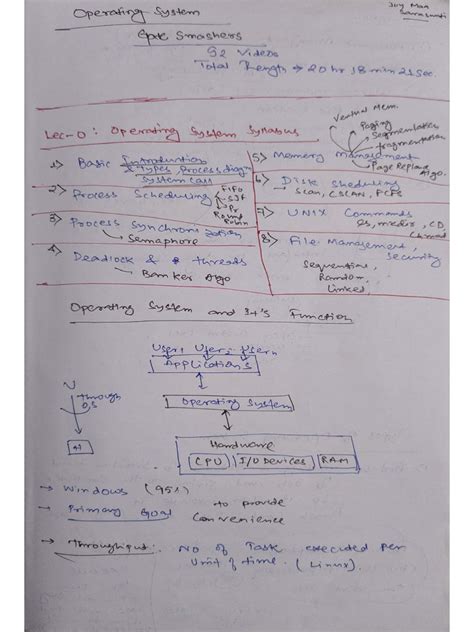 Operating System
Joy Maa
Saraswati
Gate Smashers
92 Videos
Total Length → 20 hr 18 min 21 Sec.
Lec-0: Operating System Syllabus
1) Basic Introduction
Types, Process diag,
System Call
2) Process Scheduling
FIFO
SJF
Round
Robin
3) Process Synchronization
→ Semaphore
4) Deadlock & threads
→ Banker Algo
Virtual Mem.
Paging
Segmentation
fragmentation
5) Memory Management
Page Replace
Algo.
6) Disk Sheduling
→ Scan, CSCAN, FCFS
7) UNIX Commands
ls, mkdir, CD,
Chmod
8) File Management,
Security
Sequential,
Random,
Linked,
Operating System and It's Function
User1 User2 Usern
Applications
U
through
O,S
H
Operating System
Hardware
CPU I/O Devices RAM
→ Windows (95%)
→ Primary Goal to provide
Convenience
→ Throughput: No of Task executed per
Unit of time. (Linux).